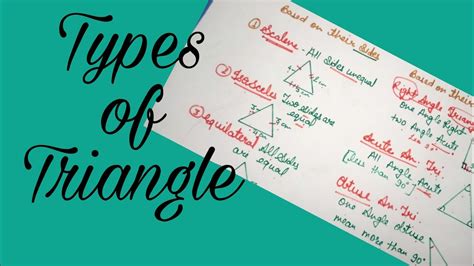 Types
of
Triangle
Based on their Sides
① Scalene - All Sides unequal
② Isosceles Two sides are
equal
③ equilateral All Sides
are equal
Based on their
Right Angle Trian
One Angle Right
two Angle Acute
Acute An. Tri.
All Angle Acute
[less than 90°]
Obtuse An. Tri.
One Angle obtuse
mean more than 90°